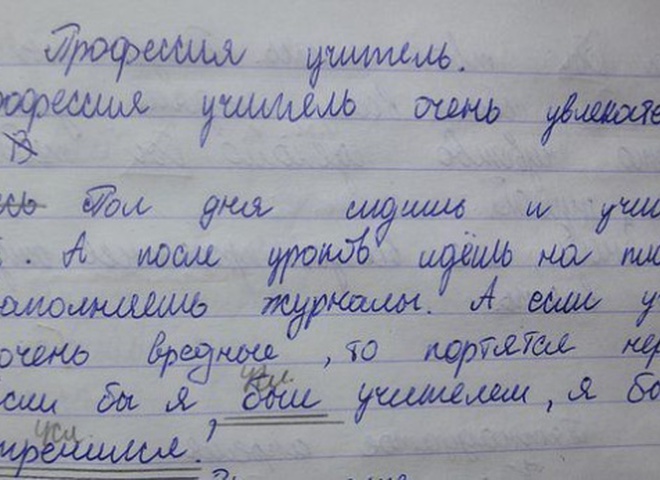 Профессия учитель.
рофессия учитель очень увлекате
Пол дня сидишь и учи
. А после уроков идёшь на пл
аполняешь журналы. А если у
очень вредные, то портятся нер
сли бы я был учителем, я бы
трелился.